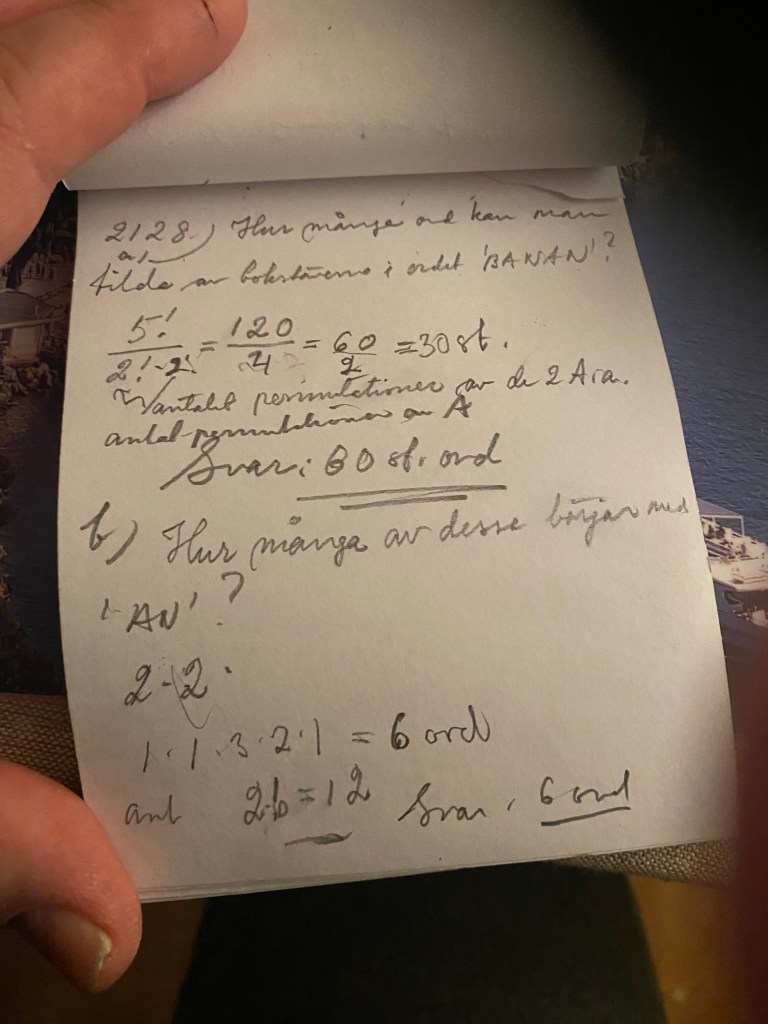 2128.) Hur många ord kan man
a,
bilda av bokstäverna i ordet 'BANAN'?
5!/2!·2! = 120/4 = 60/2 = 30 st.
antalet permutationer av de 2 A:a.
antal permutationer av A
Svar: 60 st. ord
b) Hur många av dessa börjar med
'AN'?
2·2·
1·1·3·2·1 = 6 ord
ant 2·6=12 Svar: 6 ord